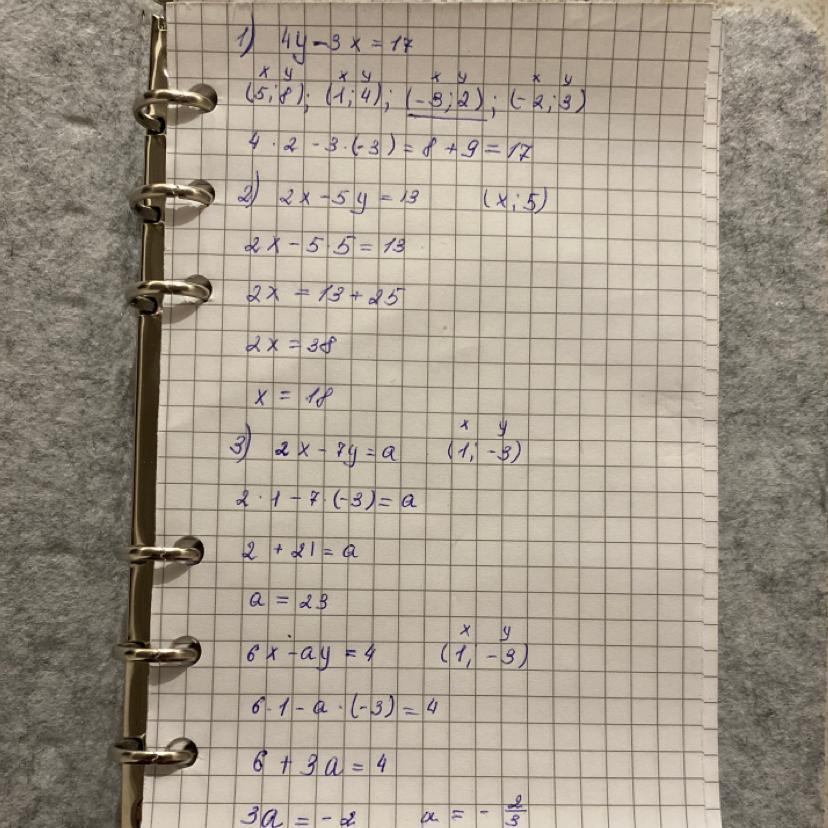 1) 4y - 3x = 17
x y x y x y x y
(5; 8); (1; 4); (-3; 2); (-2; 3)
4 · 2 - 3 · (-3) = 8 + 9 = 17
2) 2x - 5y = 13 (x; 5)
2x - 5 · 5 = 13
2x = 13 + 25
2x = 38
x = 18
x y
3) 2x - 7y = a (1; -3)
2 · 1 - 7 · (-3) = a
2 + 21 = a
a = 23
x y
6x - ay = 4 (1; -3)
6 · 1 - a · (-3) = 4
6 + 3a = 4
3a = -2 a = - 2/3